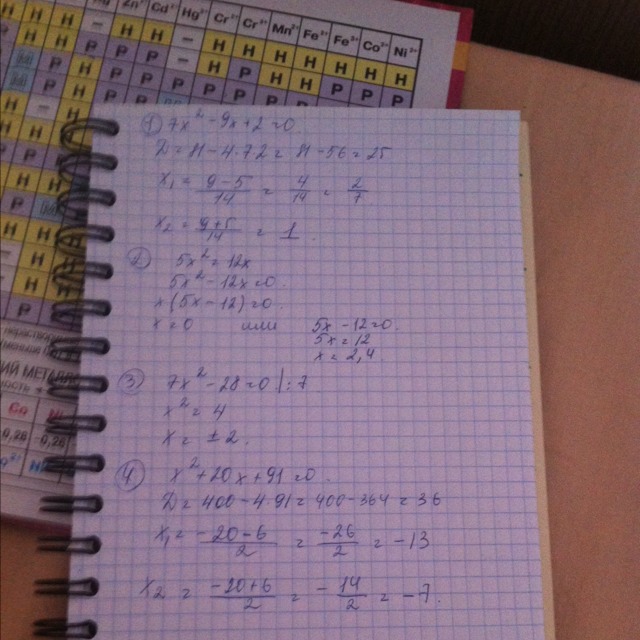 Zn²⁺ Cd²⁺ Hg²⁺ Cr²⁺ Cr³⁺ Mn²⁺ Fe²⁺ Fe³⁺ Co²⁺ Ni²⁺
Н Н – Н Н Н Н Н Н
Р Р Р Р Р Р Р Р
1) 7x² - 9x + 2 = 0
D = 81 - 4·7·2 = 81 - 56 = 25
x₁ = (9 - 5)/14 = 4/14 = 2/7
x₂ = (9 + 5)/14 = 1.
2) 5x² = 12x
5x² - 12x = 0
x(5x - 12) = 0
x = 0 или 5x - 12 = 0
5x = 12
x = 2,4
3) 7x² - 28 = 0 | : 7
x² = 4
x = ± 2.
4) x² + 20x + 91 = 0.
D = 400 - 4·91 = 400 - 364 = 36
x₁ = (-20 - 6)/2 = -26/2 = -13
x₂ = (-20 + 6)/2 = -14/2 = -7.